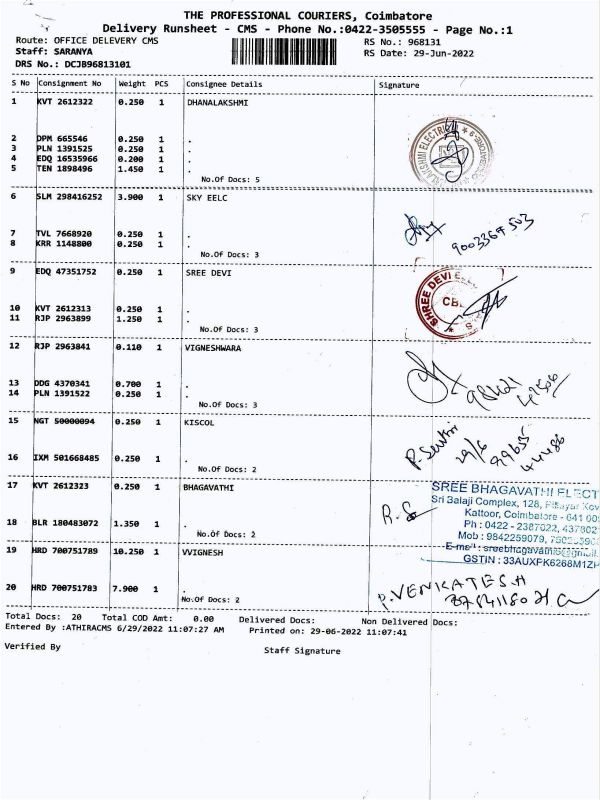 THE PROFESSIONAL COURIERS, Coimbatore
Delivery Runsheet - CMS - Phone No.:0422-3505555 - Page No.:1
Route: OFFICE DELEVERY CMS RS No.: 968131
Staff: SARANYA RS Date: 29-Jun-2022
DRS No.: DCJB96813101
S No Consignment No Weight PCS Consignee Details Signature
1 KVT 2612322 0.250 1 DHANALAKSHMI
2 DPM 665546 0.250 1 .
3 PLN 1391525 0.250 1 .
4 EDQ 16535966 0.200 1 .
5 TEN 1898496 1.450 1 .
No.Of Docs: 5
6 SLM 298416252 3.900 1 SKY EELC
7 TVL 7668920 0.250 1 .
8 KRR 1148800 0.250 1 .
No.Of Docs: 3
9003364503
9 EDQ 47351752 0.250 1 SREE DEVI
SHREE DEVI
10 KVT 2612313 0.250 1 .
11 RJP 2963899 1.250 1 .
No.Of Docs: 3
12 RJP 2963841 0.110 1 VIGNESHWARA
13 DDG 4370341 0.700 1 .
14 PLN 1391522 0.250 1 .
No.Of Docs: 3
98421
15 NGT 50000094 0.250 1 KISCOL
29/6
99655
44486
16 IXM 501668485 0.250 1 .
No.Of Docs: 2
17 KVT 2612323 0.250 1 BHAGAVATHI
SREE BHAGAVATHI ELECT
Sri Balaji Complex, 128,
Kattoor, Coimbatore - 641 00
Ph : 0422 - 2387022,
Mob : 9842259079,
GSTIN : 33AUXPK6268M1ZH
18 BLR 180483072 1.350 1 .
No.Of Docs: 2
19 HRD 700751789 10.250 1 VVIGNESH
20 HRD 700751783 7.900 1 .
No.Of Docs: 2
P.VENKATESH
Total Docs: 20 Total COD Amt: 0.00 Delivered Docs: Non Delivered Docs:
Entered By :ATHIRACMS 6/29/2022 11:07:27 AM Printed on: 29-06-2022 11:07:41
Verified By Staff Signature